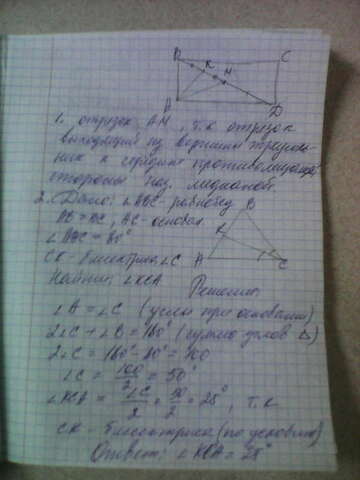 B C
K
M
A D
1. отрезок AM, т.к отрезок
выходящий из вершины треуголь-
ник к середине противолежащей
стороны наз. медианой.
2. Дано: ∠ABC - равнобед
AB=BC, AC - основан
∠ABC = 80°
CK - биссектриса ∠C
Найти: ∠KCA
B
K
A C
Решение:
∠A = ∠C (углы при основании)
2∠C + ∠B = 180° (сумма углов Δ)
2∠C = 180° - 80° = 100
∠C = 100/2 = 50°
∠KCA = ∠C/2 = 50/2 = 25°, т.к
CK - биссектриса (по условию)
Ответ: ∠KCA = 25°